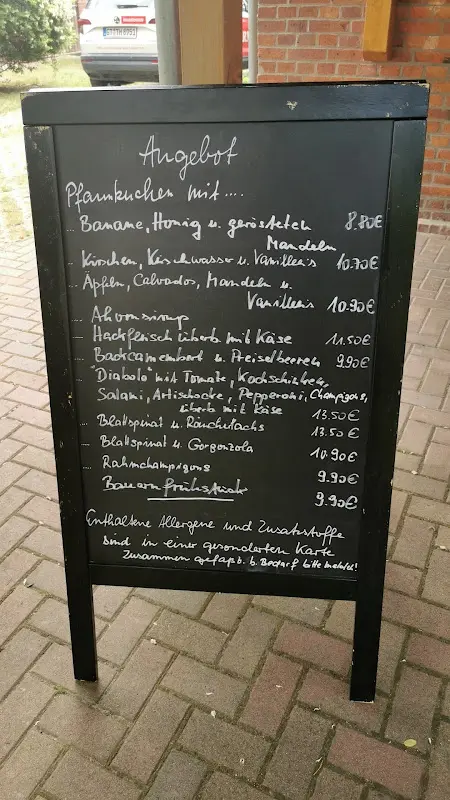 Angebot
Pfannkuchen mit....
... Banane, Honig u. gerösteten 8.80€
Mandeln
... Kirschen, Kirschwasser u. Vanilleeis 10.70€
... Äpfeln, Calvados, Mandeln u.
Vanilleeis 10.90€
... Ahornsirup
... Hackfleisch überb. mit Käse 11.50€
... Backcamembert u. Preiselbeeren 9.90€
... "Diabolo" mit Tomate, Kochschinken,
Salami, Artischocke, Pepperoni, Champigons,
überb. mit Käse 13.50€
... Blattspinat u. Räucherlachs 13.50€
... Blattspinat u. Gorgonzola 10.90€
... Rahmchampigons 9.90€
... Bauernfrühstück 9.90€
Enthaltene Allergene und Zusatzstoffe
sind in einer gesonderten Karte
zusammen gefasst. b. Bedarf bitte melden!